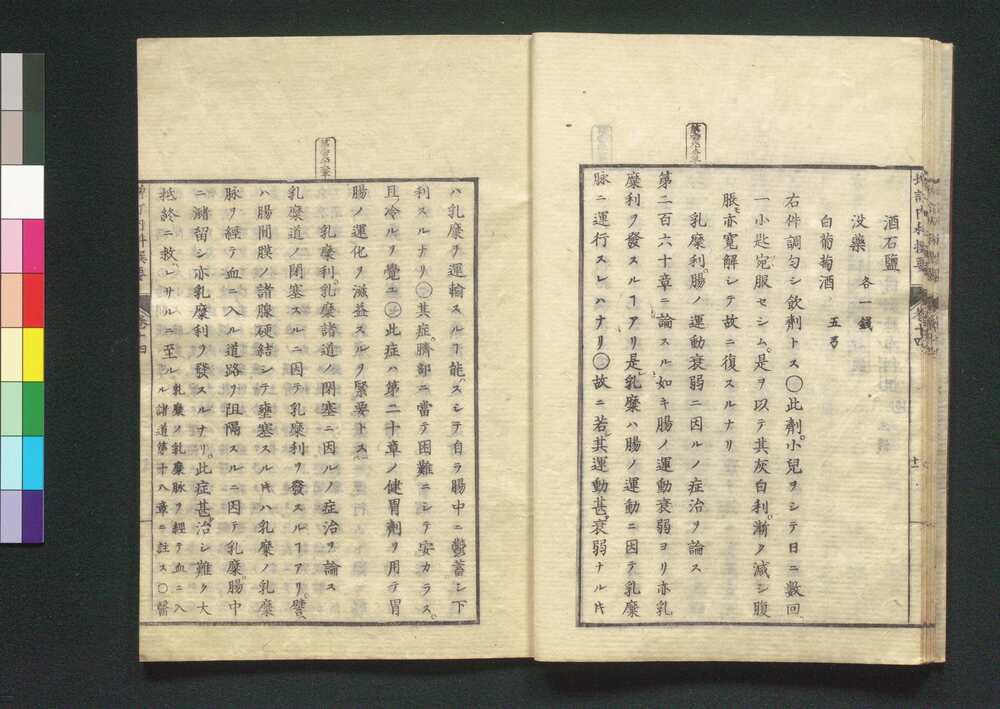 酒石鹽
没藥 各一錢
白葡萄酒 五弓
右件調匀シ飲劑トス〇此劑小兒ヲシテ日ニ數回
一小匙宛服セシム是ヲ以テ其灰白利漸ク減シ腹
脹亦寛解シテ故ニ復スルナリ
乳糜利腸ノ運動衰弱ニ因ルノ症治ヲ論ス
第二百六十章ニ論スル如キ腸ノ運動衰弱ヨリ亦乳
糜利ヲ發スルヿアリ是乳糜ハ腸ノ運動ニ因テ乳糜
脉ニ運行スレハナリ〇故ニ若其運動甚衰弱ナル𪜈
ハ乳糜ヲ運輸スルヿ能スシテ自ラ腸中ニ鬱蓄シ下
利スルナリ〇其症臍部ニ當テ困難ニシテ安カラス
且冷ルヲ覺ユ〇此症ハ第二十章ノ健胃劑ヲ用テ胃
腸ノ運化ヲ滋益スルヲ緊要トス
乳糜利乳糜諸道ノ閉塞ニ因ルノ症治ヲ論ス
乳糜道ノ閉塞スルニ因テ乳糜利ヲ發スルヿアリ譬
ハ腸間膜ノ諸腺硬結シテ壅塞スル𪜈ハ乳糜ノ乳糜
脉ヲ經テ血ニ入ル道路ヲ阻隔スルニ因テ乳糜腸中
ニ瀦留シ亦乳糜利ヲ發スルナリ此症甚治シ難ク大
抵終ニ救レサルニ至ル 乳糜ノ乳糜脉ヲ經テ血ニ入
ル諸道第十八章ニ註ス〇醫